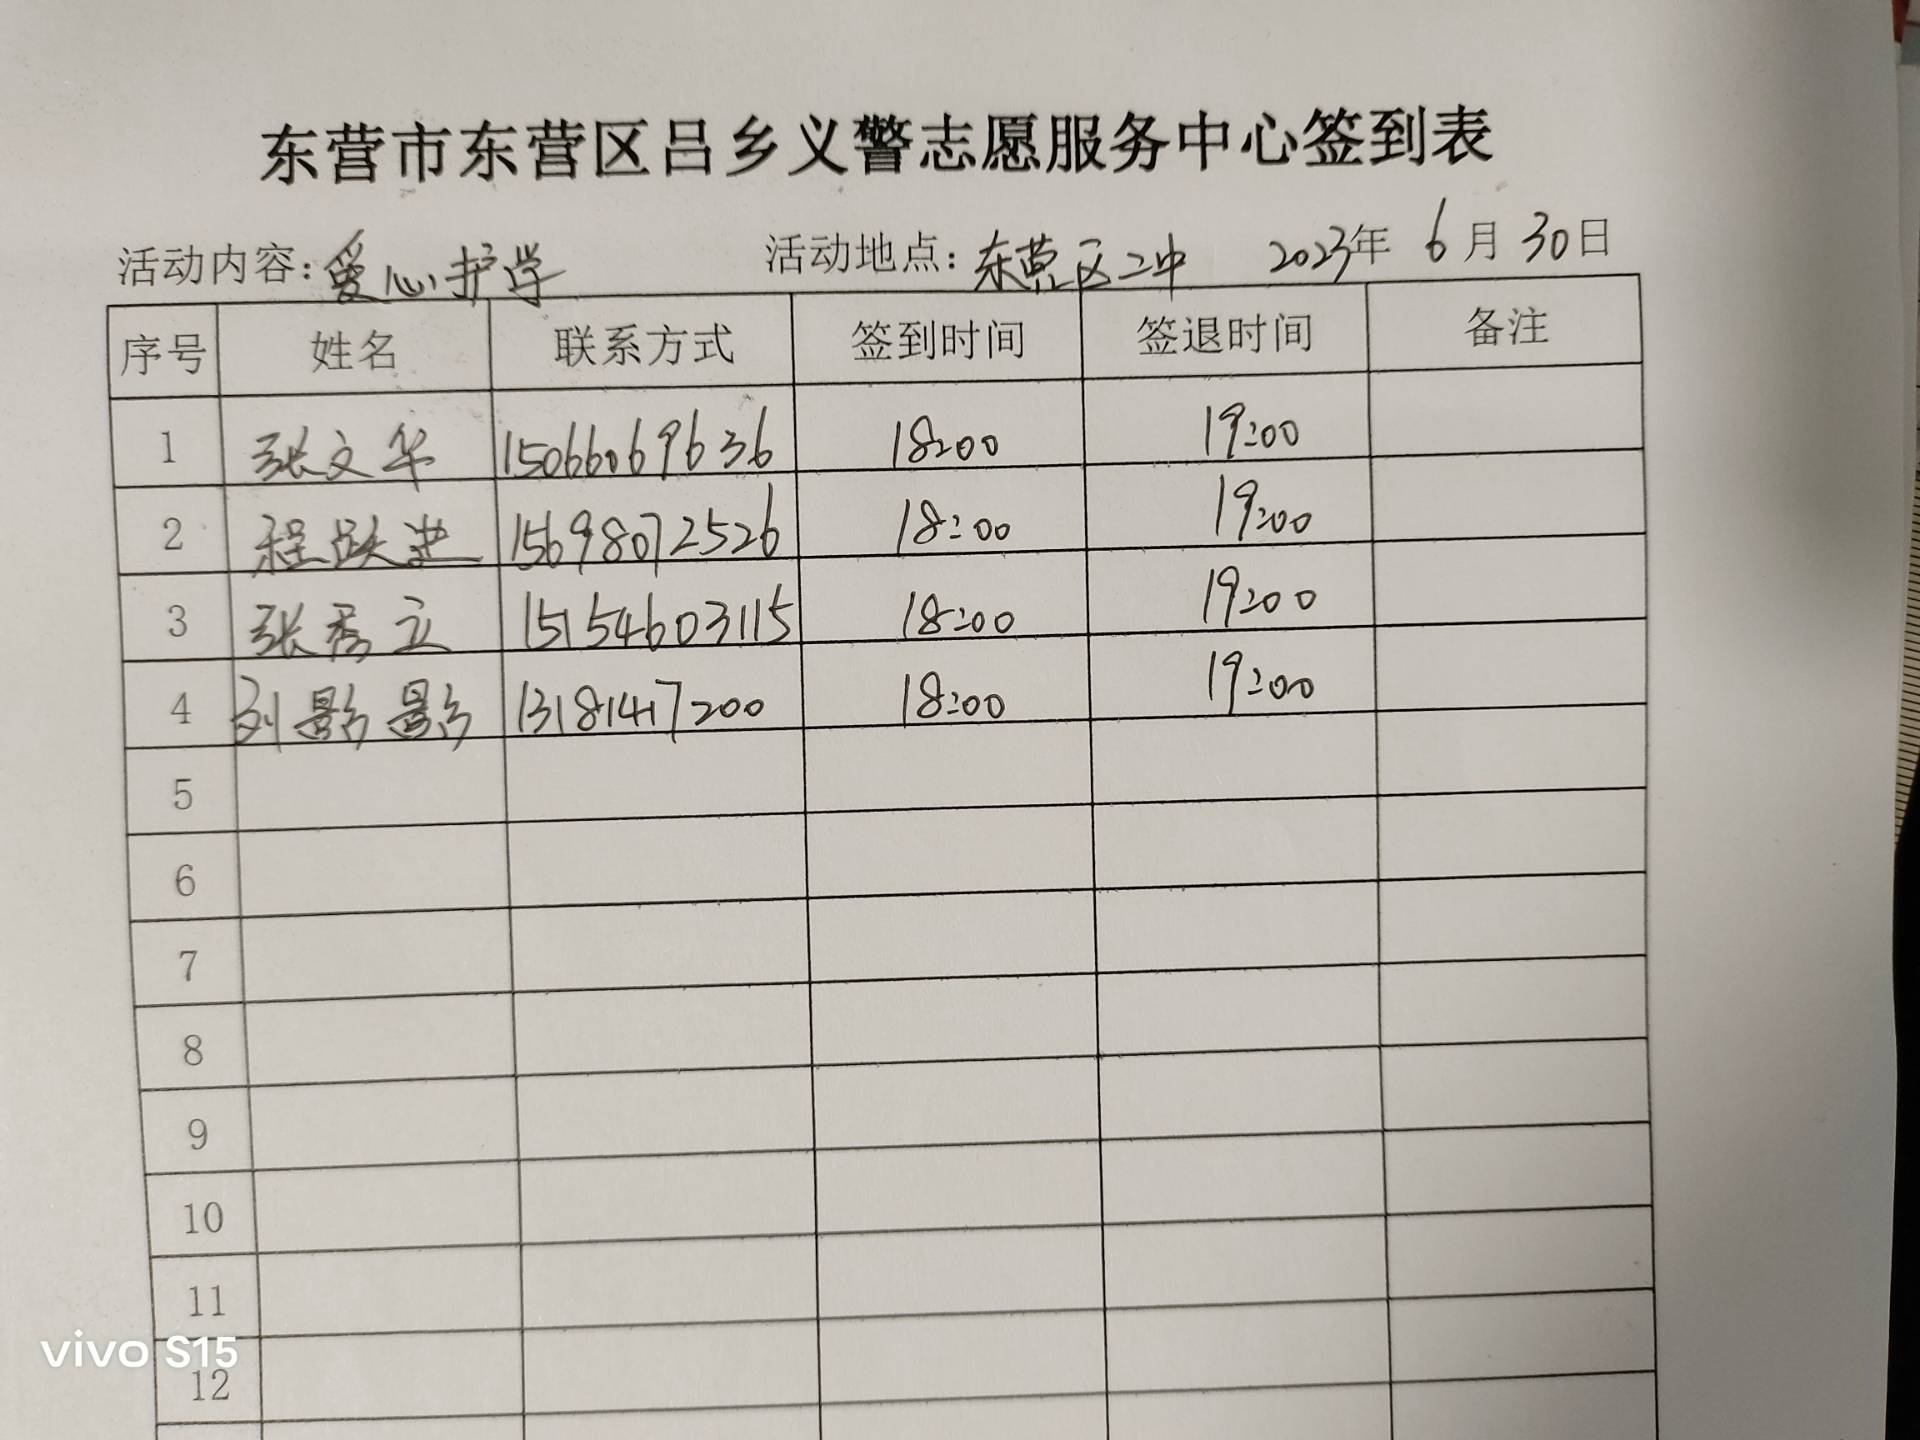 东营市东营区吕乡义警志愿服务中心签到表
活动内容：爱心护学 活动地点：东营区二中 2023年 6月30日
序号 姓名 联系方式 签到时间 签退时间 备注
1 张文华 15066069636 18:00 19:00
2 程跃进 15698072526 18:00 19:00
3 张秀立 15154603115 18:00 19:00
4 刘影影 13181417200 18:00 19:00
5
6
7
8
9
10
11
12
vivo S15